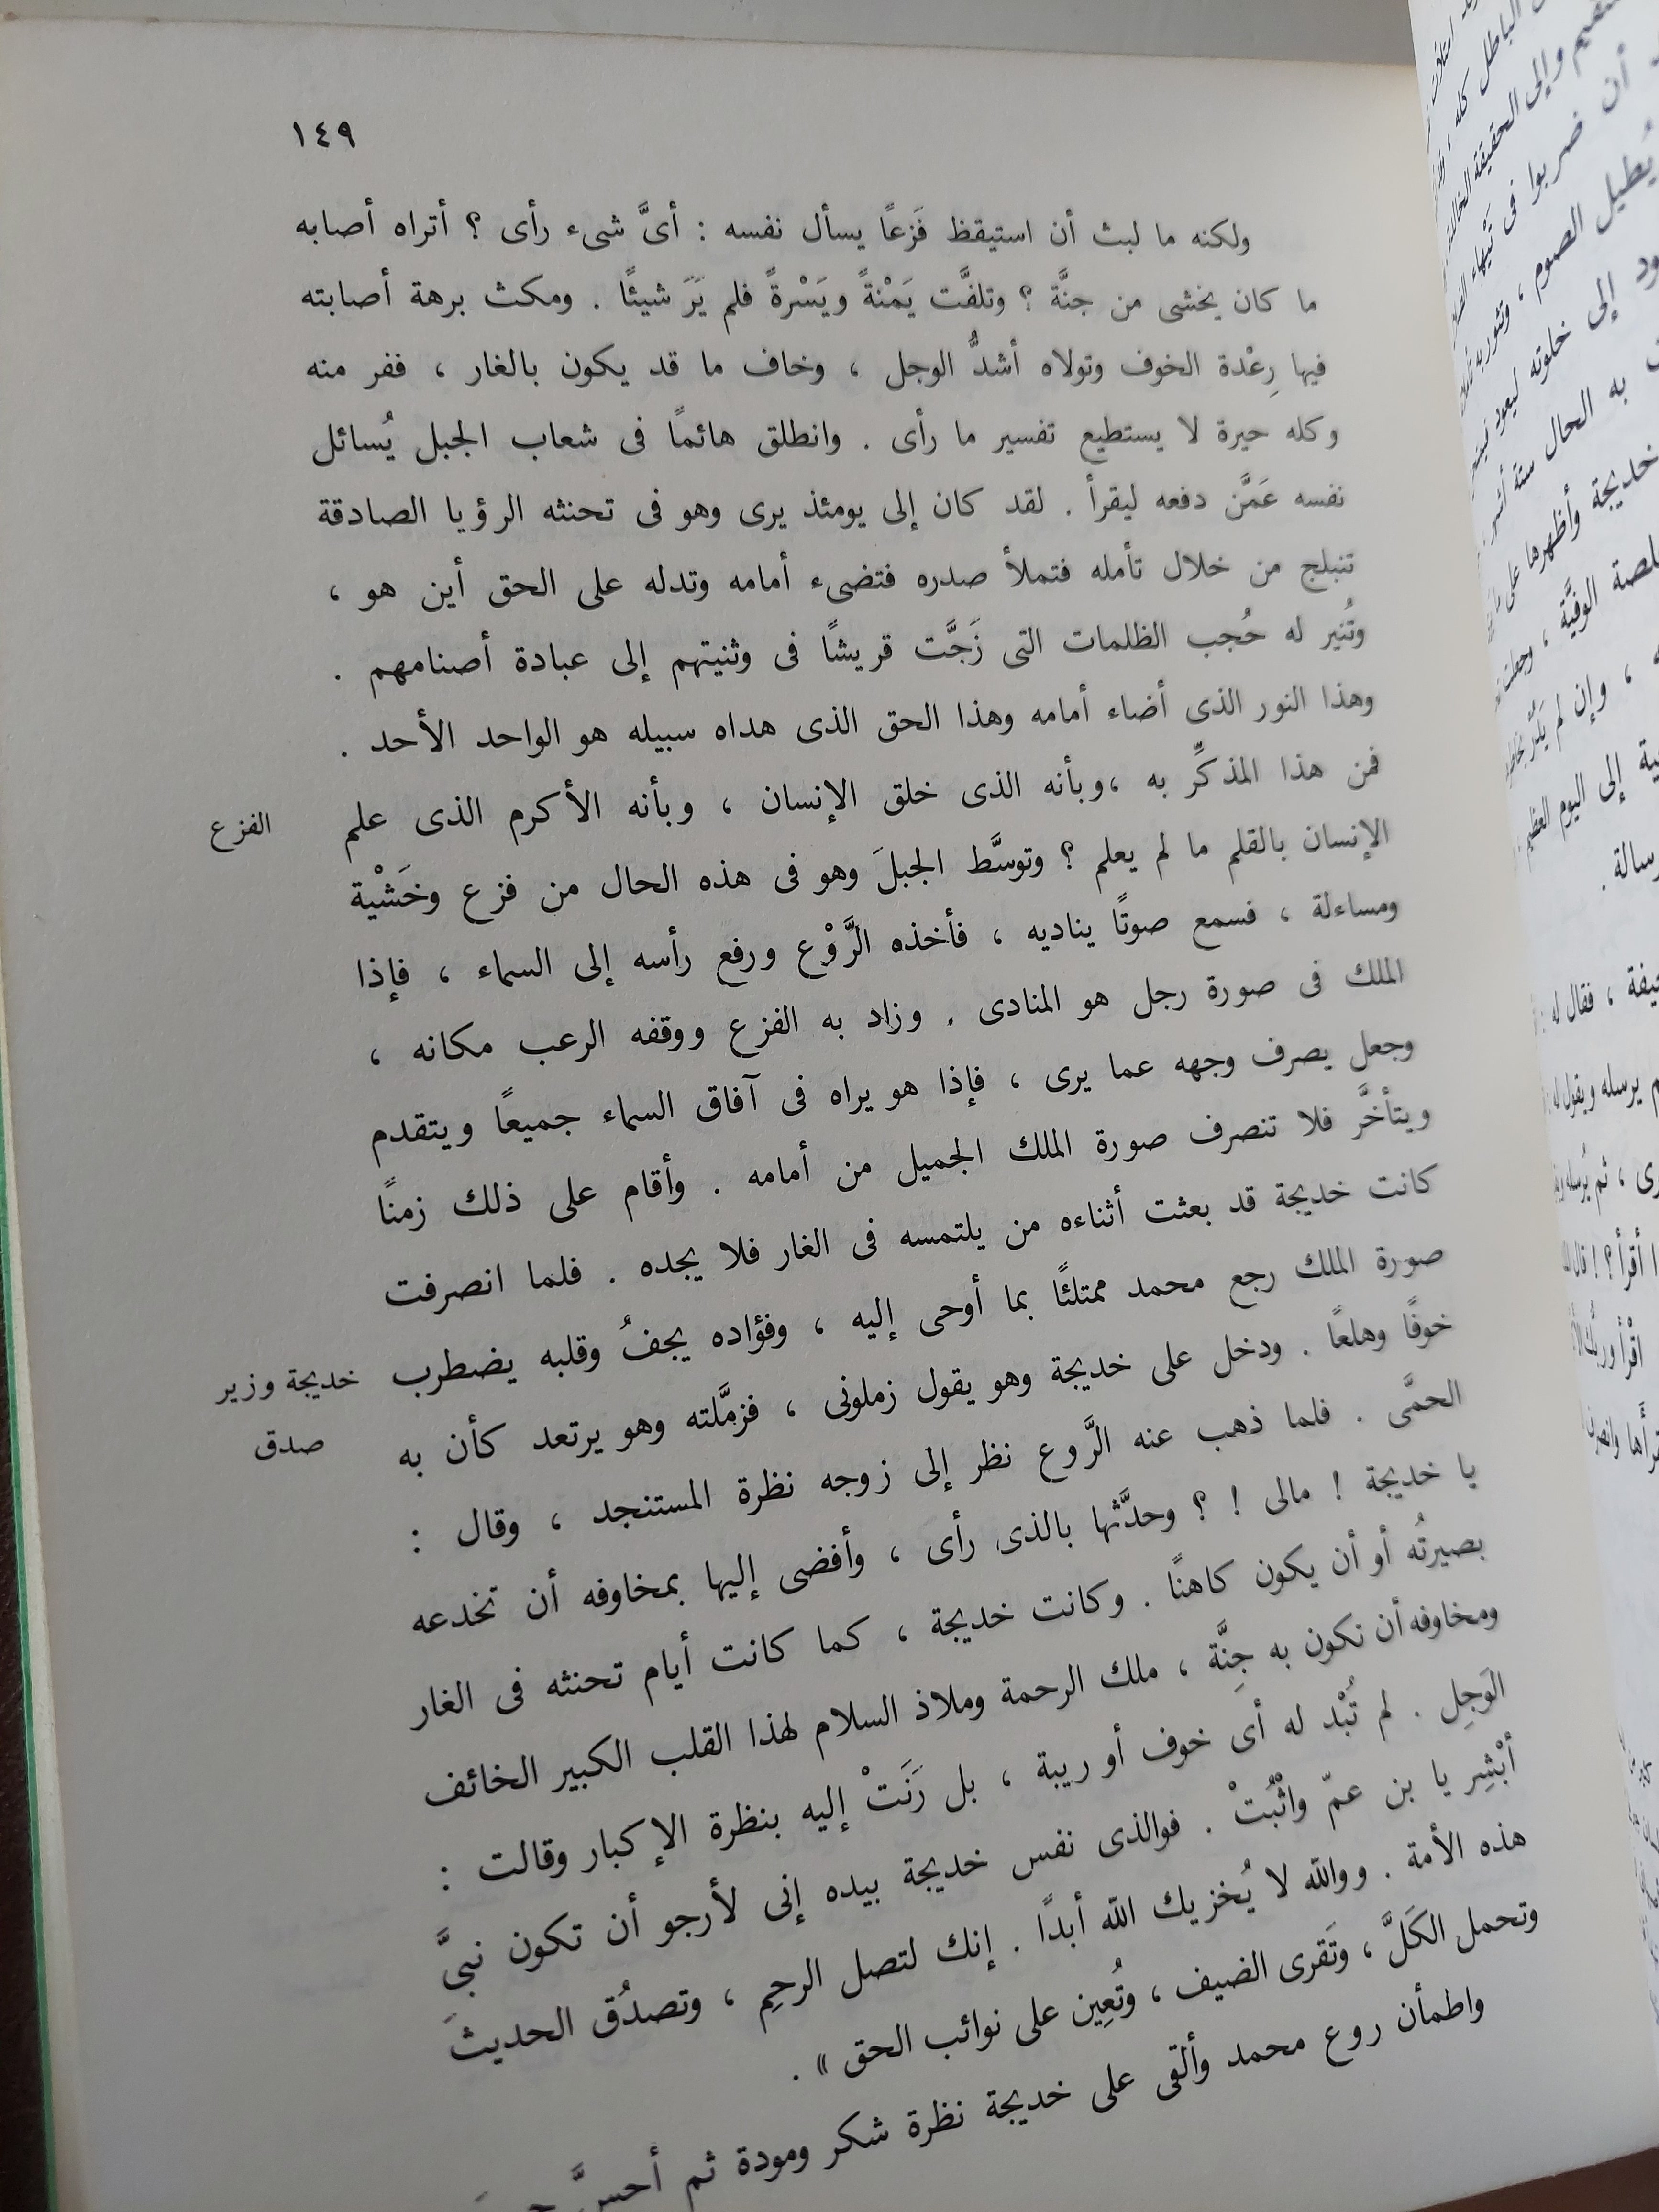 ١٤٩
ولكنه ما لبث أن استيقظ فَزعًا يسأل نفسه : أىَّ شىء رأى ؟ أتراه أصابه
ما كان يخشى من جنَّة ؟ وتلفَّت يَمْنةً ويَسْرةً فلم يَرَ شيئًا . ومكث برهة أصابته
فيها رِعْدة الخوف وتولاه أشدُّ الوجل ، وخاف ما قد يكون بالغار ، ففر منه
وكله حيرة لا يستطيع تفسير ما رأى . وانطلق هائمًا فى شعاب الجبل يُسائل
نفسه عَمَّن دفعه ليقرأ . لقد كان إلى يومئذ يرى وهو فى تحنثه الرؤيا الصادقة
تنبلج من خلال تأمله فتملأ صدره فتضىء أمامه وتدله على الحق أين هو ،
وتُنير له حُجب الظلمات التى زَجَّت قريشًا فى وثنيتهم إلى عبادة أصنامهم .
وهذا النور الذى أضاء أمامه وهذا الحق الذى هداه سبيله هو الواحد الأحد .
فمن هذا المذكِّر به ،وبأنه الذى خلق الإنسان ، وبأنه الأكرم الذى علم
الفزع
الإنسان بالقلم ما لم يعلم ؟ وتوسَّط الجبلَ وهو فى هذه الحال من فزع وخَشْية
ومساءلة ، فسمع صوتًا يناديه ، فأخذه الرَّوْع ورفع رأسه إلى السماء ، فإذا
الملك فى صورة رجل هو المنادى . وزاد به الفزع ووقفه الرعب مكانه ،
وجعل يصرف وجهه عما يرى ، فإذا هو يراه فى آفاق السماء جميعًا ويتقدم
ويتأخَّر فلا تنصرف صورة الملك الجميل من أمامه . وأقام على ذلك زمنًا
كانت خديجة قد بعثت أثناءه من يلتمسه فى الغار فلا يجده . فلما انصرفت
صورة الملك رجع محمد ممتلئًا بما أوحى إليه ، وفؤاده يجفُ وقلبه يضطرب
خديجة وزير
صدق
خوفًا وهلعًا . ودخل على خديجة وهو يقول زملونى ، فزمَّلته وهو يرتعد كأن به
الحمَّى . فلما ذهب عنه الرَّوع نظر إلى زوجه نظرة المستنجد ، وقال :
يا خديجة ! مالى ! ؟ وحدَّثها بالذى رأى ، وأفضى إليها بمخاوفه أن تخدعه
بصيرتُه أو أن يكون كاهنًا . وكانت خديجة ، كما كانت أيام تحنثه فى الغار
ومخاوفه أن تكون به جِنَّة ، ملك الرحمة وملاذ السلام لهذا القلب الكبير الخائف
الوَجِل . لم تُبْد له أى خوف أو ريبة ، بل رَنَتْ إليه بنظرة الإكبار وقالت :
أبْشِر يا بن عمّ واثْبُتْ . فوالذى نفس خديجة بيده إنى لأرجو أن تكون نبىَّ
هذه الأمة . ووالله لا يُخزيك الله أبدًا . إنك لتصل الرحِم ، وتصدُق الحديثَ
وتحمل الكَلَّ ، وتَقرى الضيف ، وتُعِين على نوائب الحق » .
واطمأن روع محمد وألقى على خديجة نظرة شكر ومودة ثم أحسَّ